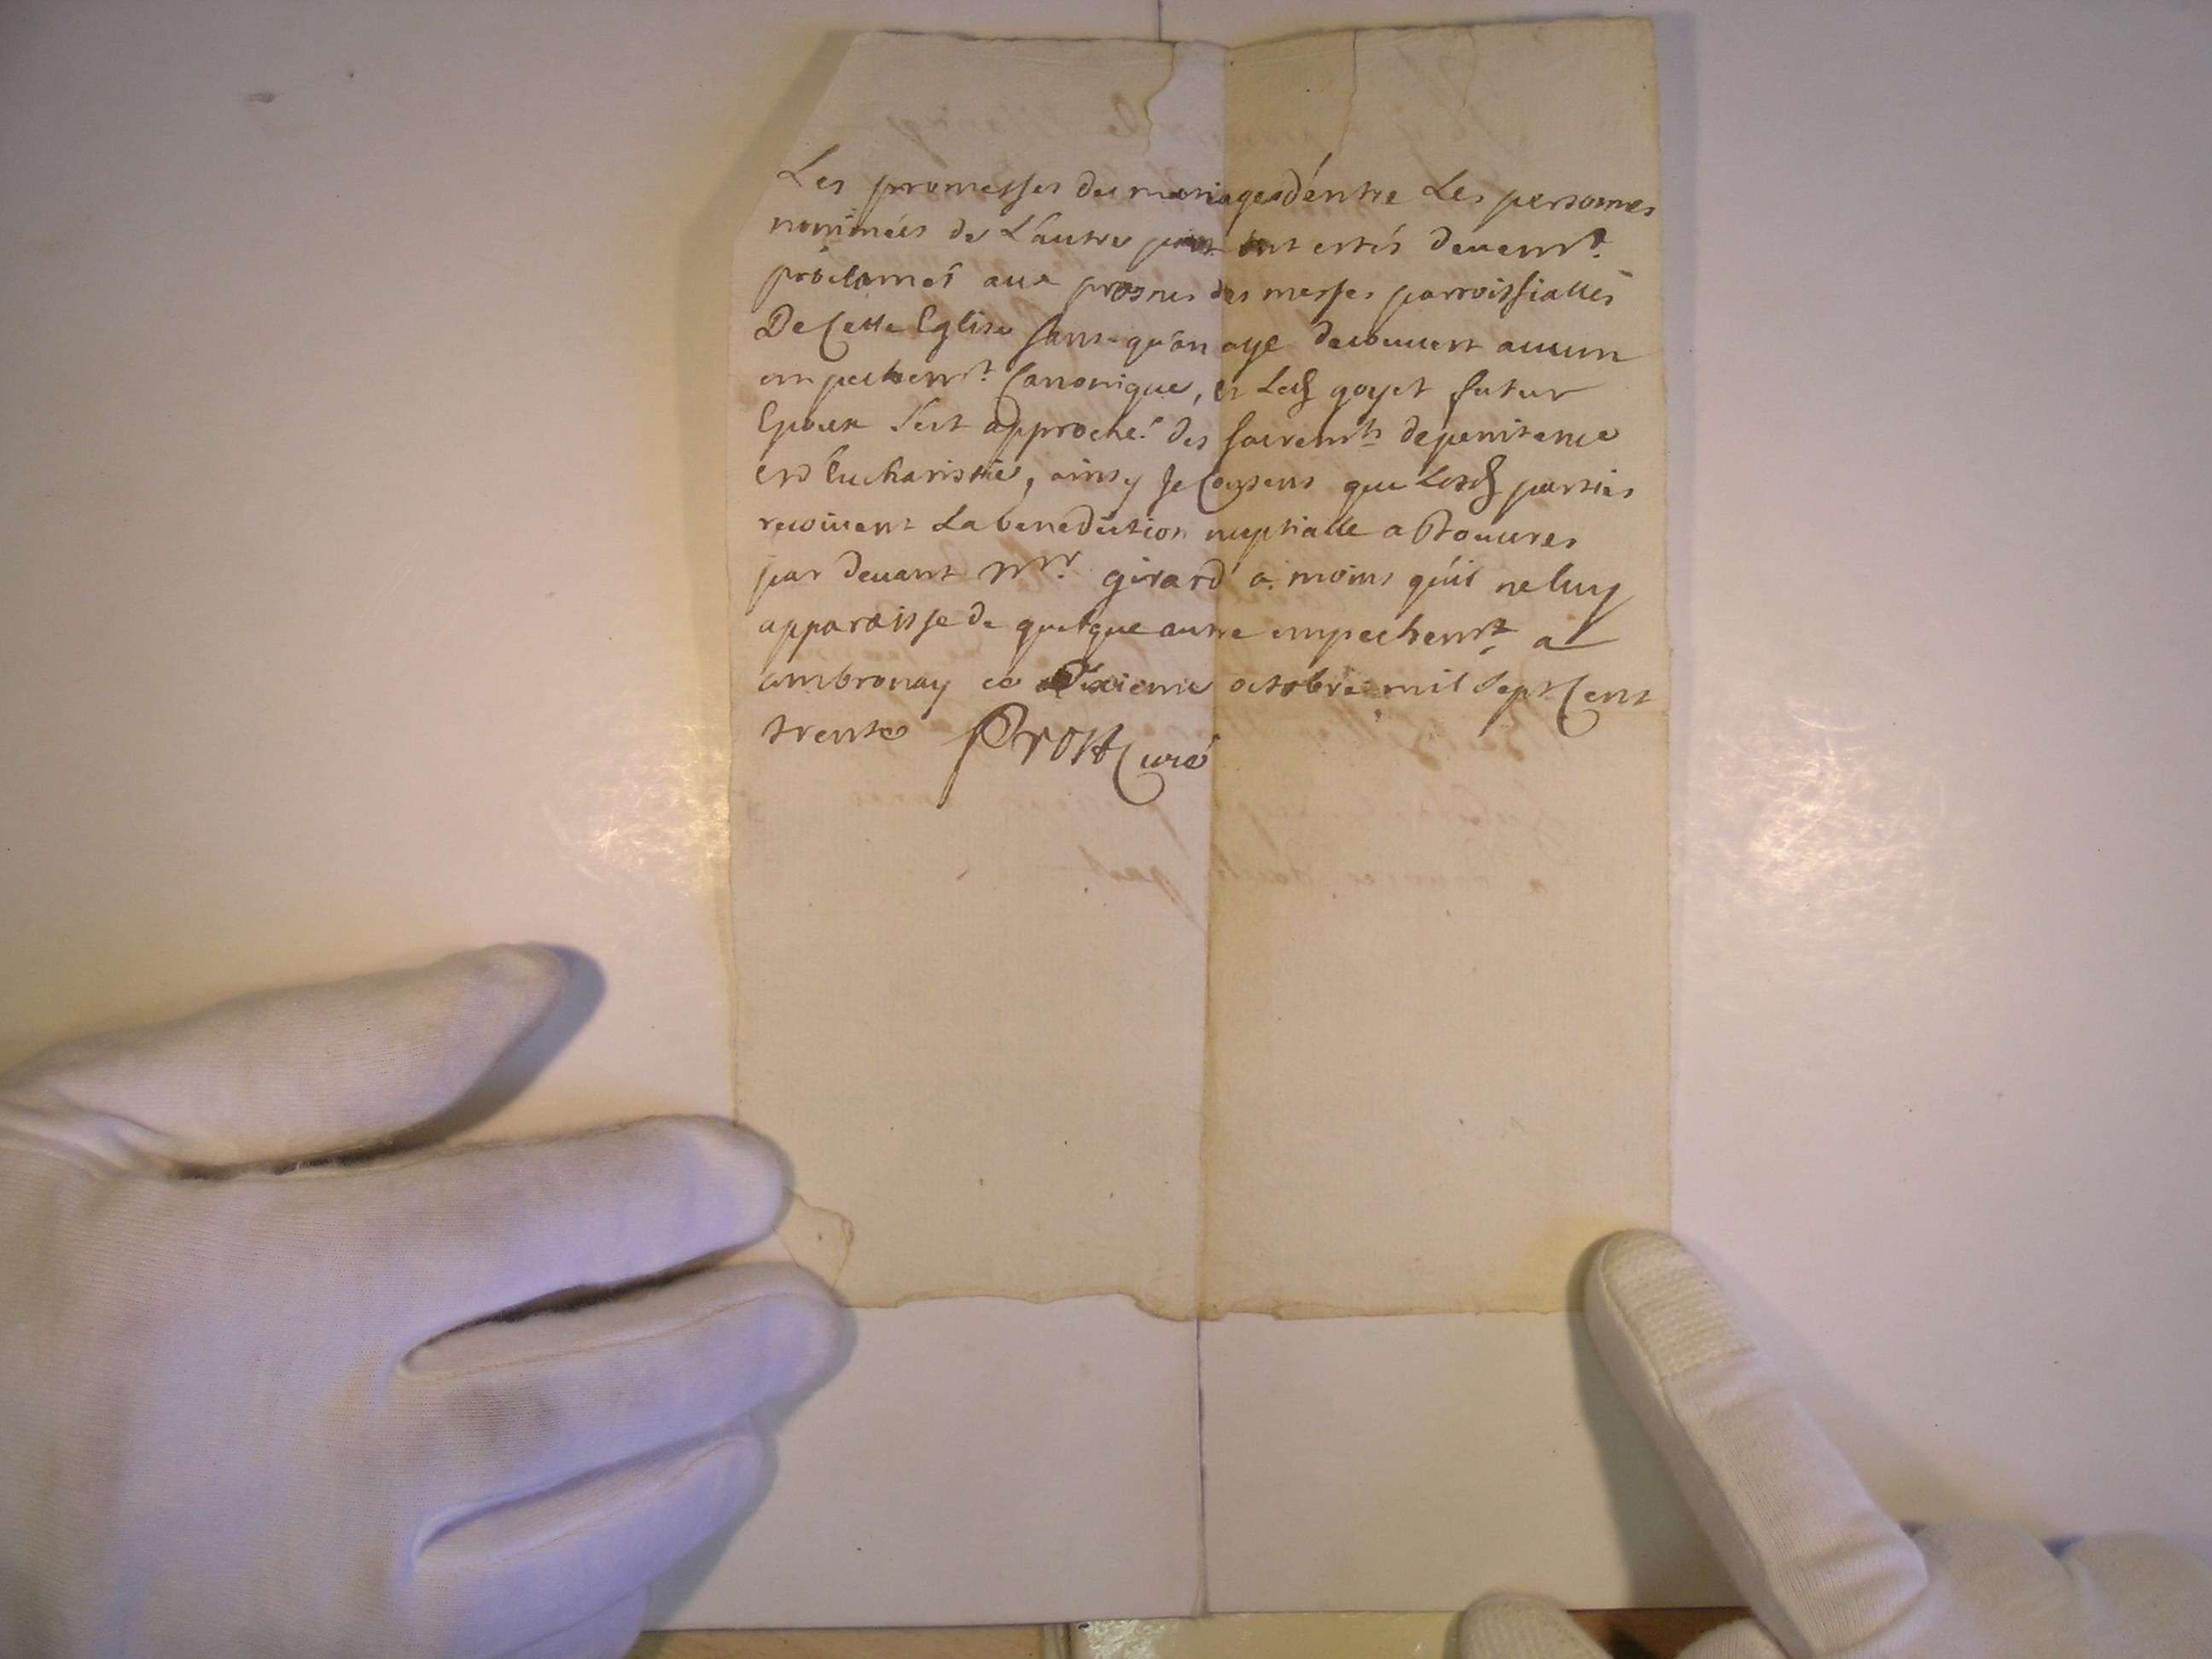 Les promesses de mariage d'entre Les personnes
nominées de L'autre part ont estés deuemt.
proclamés aux prosnes des messes parroissialles
De Cette Eglise sans qu'on aye decouuert aucun
empechemt. Canonique, et Led goyet futur
Epoux s'est approché des sacremts depenitence
etd'Eucharistie, ainsy Je Consens que Lesd parties
recoiuent La benediction nuptialle a
par deuant Mr. girard a moins qu'il ne luy
apparoisse de quelque autre empechemt. a
ambronay ce Dixieme octobre mil sept Cent
trente Prost Curé